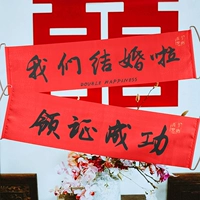 囍
我们结婚啦
DOUBLE HAPPINESS
领证成功